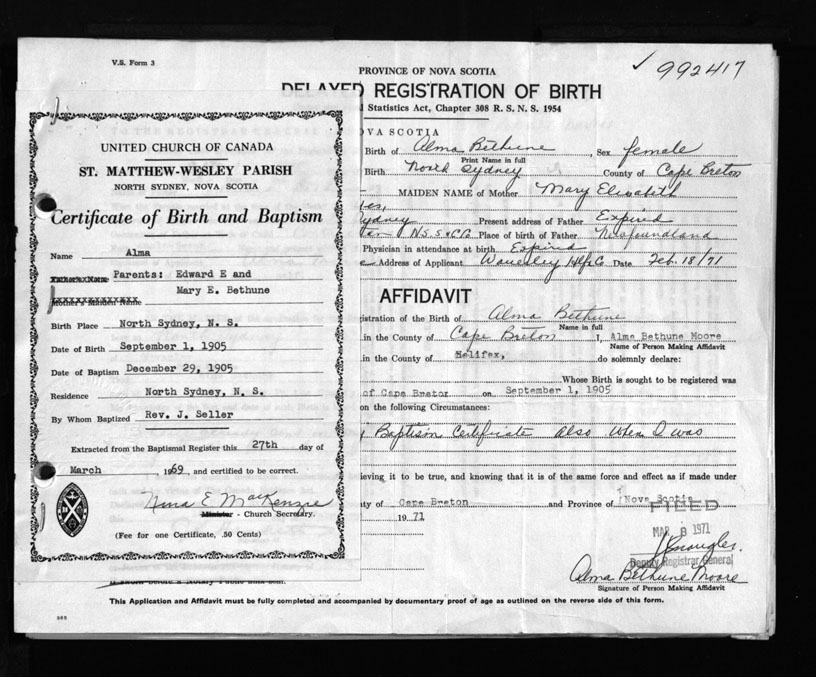 V.S. Form 3
PROVINCE OF NOVA SCOTIA
992417
DELAYED REGISTRATION OF BIRTH
Statistics Act, Chapter 308 R. S. N. S. 1954
NOVA SCOTIA
Birth of Alma Bethune, Sex female
Print Name in full
Birth North Sydney County of Cape Breton
MAIDEN NAME of Mother Mary Elizabeth
Sydney Present address of Father Expired
N.S. Place of birth of Father Newfoundland
Physician in attendance at birth Expired
Address of Applicant Waverley Hfx Co. Date Feb. 18/71
AFFIDAVIT
istration of the Birth of Alma Bethune
Name in full
in the County of Cape Breton I, Alma Bethune Moore
Name of Person Making Affidavit
in the County of Halifax, do solemnly declare:
Whose Birth is sought to be registered was
of Cape Breton on September 1, 1905
on the following Circumstances:
Baptism Certificate also when I was
ieving it to be true, and knowing that it is of the same force and effect as if made under
ty of Cape Breton and Province of Nova Scotia
1971
FILED
MAR 8 1971
Deputy Registrar General
Alma Bethune Moore
Signature of Person Making Affidavit
This Application and Affidavit must be fully completed and accompanied by documentary proof of age as outlined on the reverse side of this form.
UNITED CHURCH OF CANADA
ST. MATTHEW-WESLEY PARISH
NORTH SYDNEY, NOVA SCOTIA
Certificate of Birth and Baptism
Name Alma
Parents: Edward E and
Mary E. Bethune
Mother's Maiden Name
Birth Place North Sydney, N. S.
Date of Birth September 1, 1905
Date of Baptism December 29, 1905
Residence North Sydney, N. S.
By Whom Baptized Rev. J. Seller
Extracted from the Baptismal Register this 27th day of
March 1969, and certified to be correct.
Nina E. MacKenzie
Minister - Church Secretary.
(Fee for one Certificate, .50 Cents)